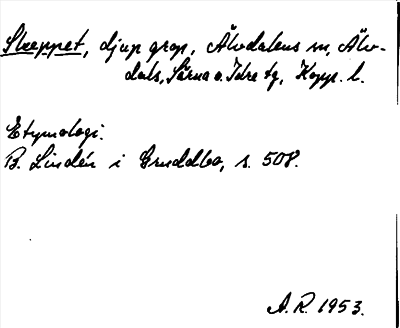 Skeppet, djup grop, Älvdalens sn, Älv-
dals, Särna o. Idre tg, Kopp. l.
Etymologi.
B. Lindén i Gruddbo, s. 508.
A. R. 1953.